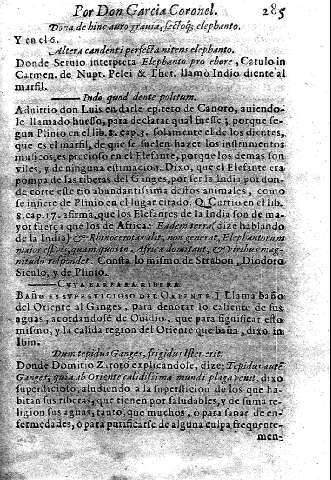 Por Don Garcia Coronel. 285
Dona dehinc auro gravia, sectoq; elephanto.
Y en el 6.
Altera candenti perfecta nitens elephanto.
Donde Seruio interpreta Elephanto pro ebore, Catulo in
Carmen. de Nupt. Pelei & Thet. llamò Indio diente al
marfil.
Indo quod dente politum.
Aduirtio don Luis en darle epiteto de Canoro, auiendo-
le llamado huesso, para declarar qual fuesse; porque se-
gun Plinio en el lib. 8. cap. 3. solamente el de los dientes,
que es el marfil, de que se suelen hazer los instrumentos
musicos, es precioso en el Elefante, porque los demas son
viles, y de ninguna estimacion. Dixo, que el Elefante era
pompa de las riberas del Ganges, por ser la India por don-
de corre este rio abundantissima destos animales, como
se infiere de Plinio en el lugar citado. Q. Curtio en el lib.
8. cap. 17. afirma, que los Elefantes de la India son de ma-
yor fuerça que los de Africa: Eadem terra (dize hablando
de la India) & Rhinocerotas alit, non generat, Elephantorum
maior est vis, quam quos in Africa domitant, & viribus mag-
nitudo respondet. Consta lo mismo de Strabon, Diodoro
Siculo, y de Plinio.
CVYA BARBARA RIBERA
BAÑO SVPERSTICIOSO DEL ORIENTE.] Llama baño
del Oriente al Ganges, para denotar lo caliente de sus
aguas, acordandose de Ouidio, que para significar esto
mismo, y la calida region del Oriente que baña, dixo in
Ibin.
Dum tepidus Ganges, frigidus Ister erit.
Donde Domitio explicandose, dize; Tepidus autè
Ganges, quia ab Oriente calidissima mundi plaga venit. dixo
supersticioso, aludiendo a la supersticion de los que ha-
bitan sus riberas, que tienen por saludables, y de suma re-
ligion sus aguas, tanto, que muchos, ò para sanar de en-
fermedades, ò para purificarse de alguna culpa frequente-
men-